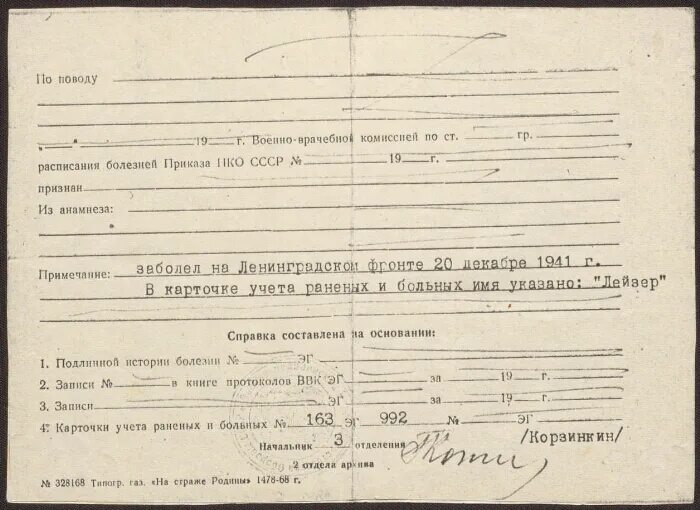 По поводу
19 г. Военно-врачебной комиссией по ст. гр.
расписания болезней Приказа НКО СССР № 19 г.
признан
Из анамнеза:
Примечание: заболел на Ленинградском фронте 20 декабре 1941 г.
В карточке учета раненых и больных имя указано: "Лейзер"
Справка составлена на основании:
1. Подлинной истории болезни № ЭГ
2. Записи № в книге протоколов ВВК ЭГ за 19 г.
3. Записи ЭГ за 19 г.
4. Карточки учета раненых и больных № 163 ЭГ 992 № ЭГ
Начальник 3 отделения /Корзинкин/
2 отдела архива
№ 328168 Типогр. газ. «На страже Родины» 1478-68 г.